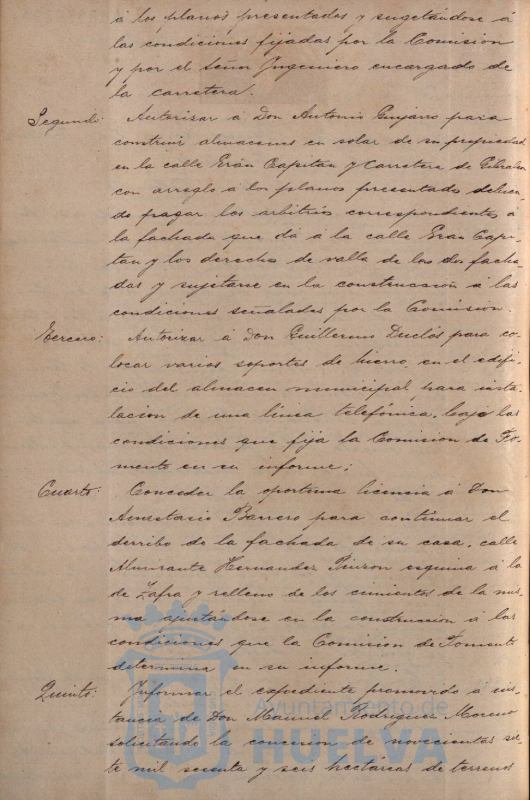 á los planos presentados y sugetándose á
las condiciones fijadas por la Comision
y por el Señor Ingeniero encargado de
la carretera.
Segundo: Autorizar á Don Antonio Guijarro para
construir almacenes en solar de su propiedad
en la calle Gran Capitan y Carretera de Gibraleon
con arreglo á los planos presentados debien-
do pagar los arbitrios correspondientes á
la fachada que dá á la calle Gran Capi-
tan y los derechos de valla de las dos facha-
das y sujetarse en la construccion á las
condiciones señaladas por la Comision.
Tercero: Autorizar á Don Guillermo Duclós para co-
locar varios soportes de hierro en el edifi-
cio del almacen municipal para insta-
lacion de una linea telefónica, bajo las
condiciones que fija la Comision de Fo-
mento en su informe.
Cuarto: Conceder la oportuna licencia á Don
Anastasio Barrero para continuar el
derribo de la fachada de su casa, calle
Almirante Hernandez Pinzon esquina á la
de Zafra y relleno de los cimientos de la mis-
ma ajustándose en la construccion á las
condiciones que la Comision de Fomento
determina en su informe.
Quinto: Informar el expediente promovido á ins-
tancia de Don Manuel Rodriguez Moreno
solicitando la concesion de novecientas sie-
te mil sesenta y seis hectáreas de terrenos
Ayuntamiento de
HUELVA